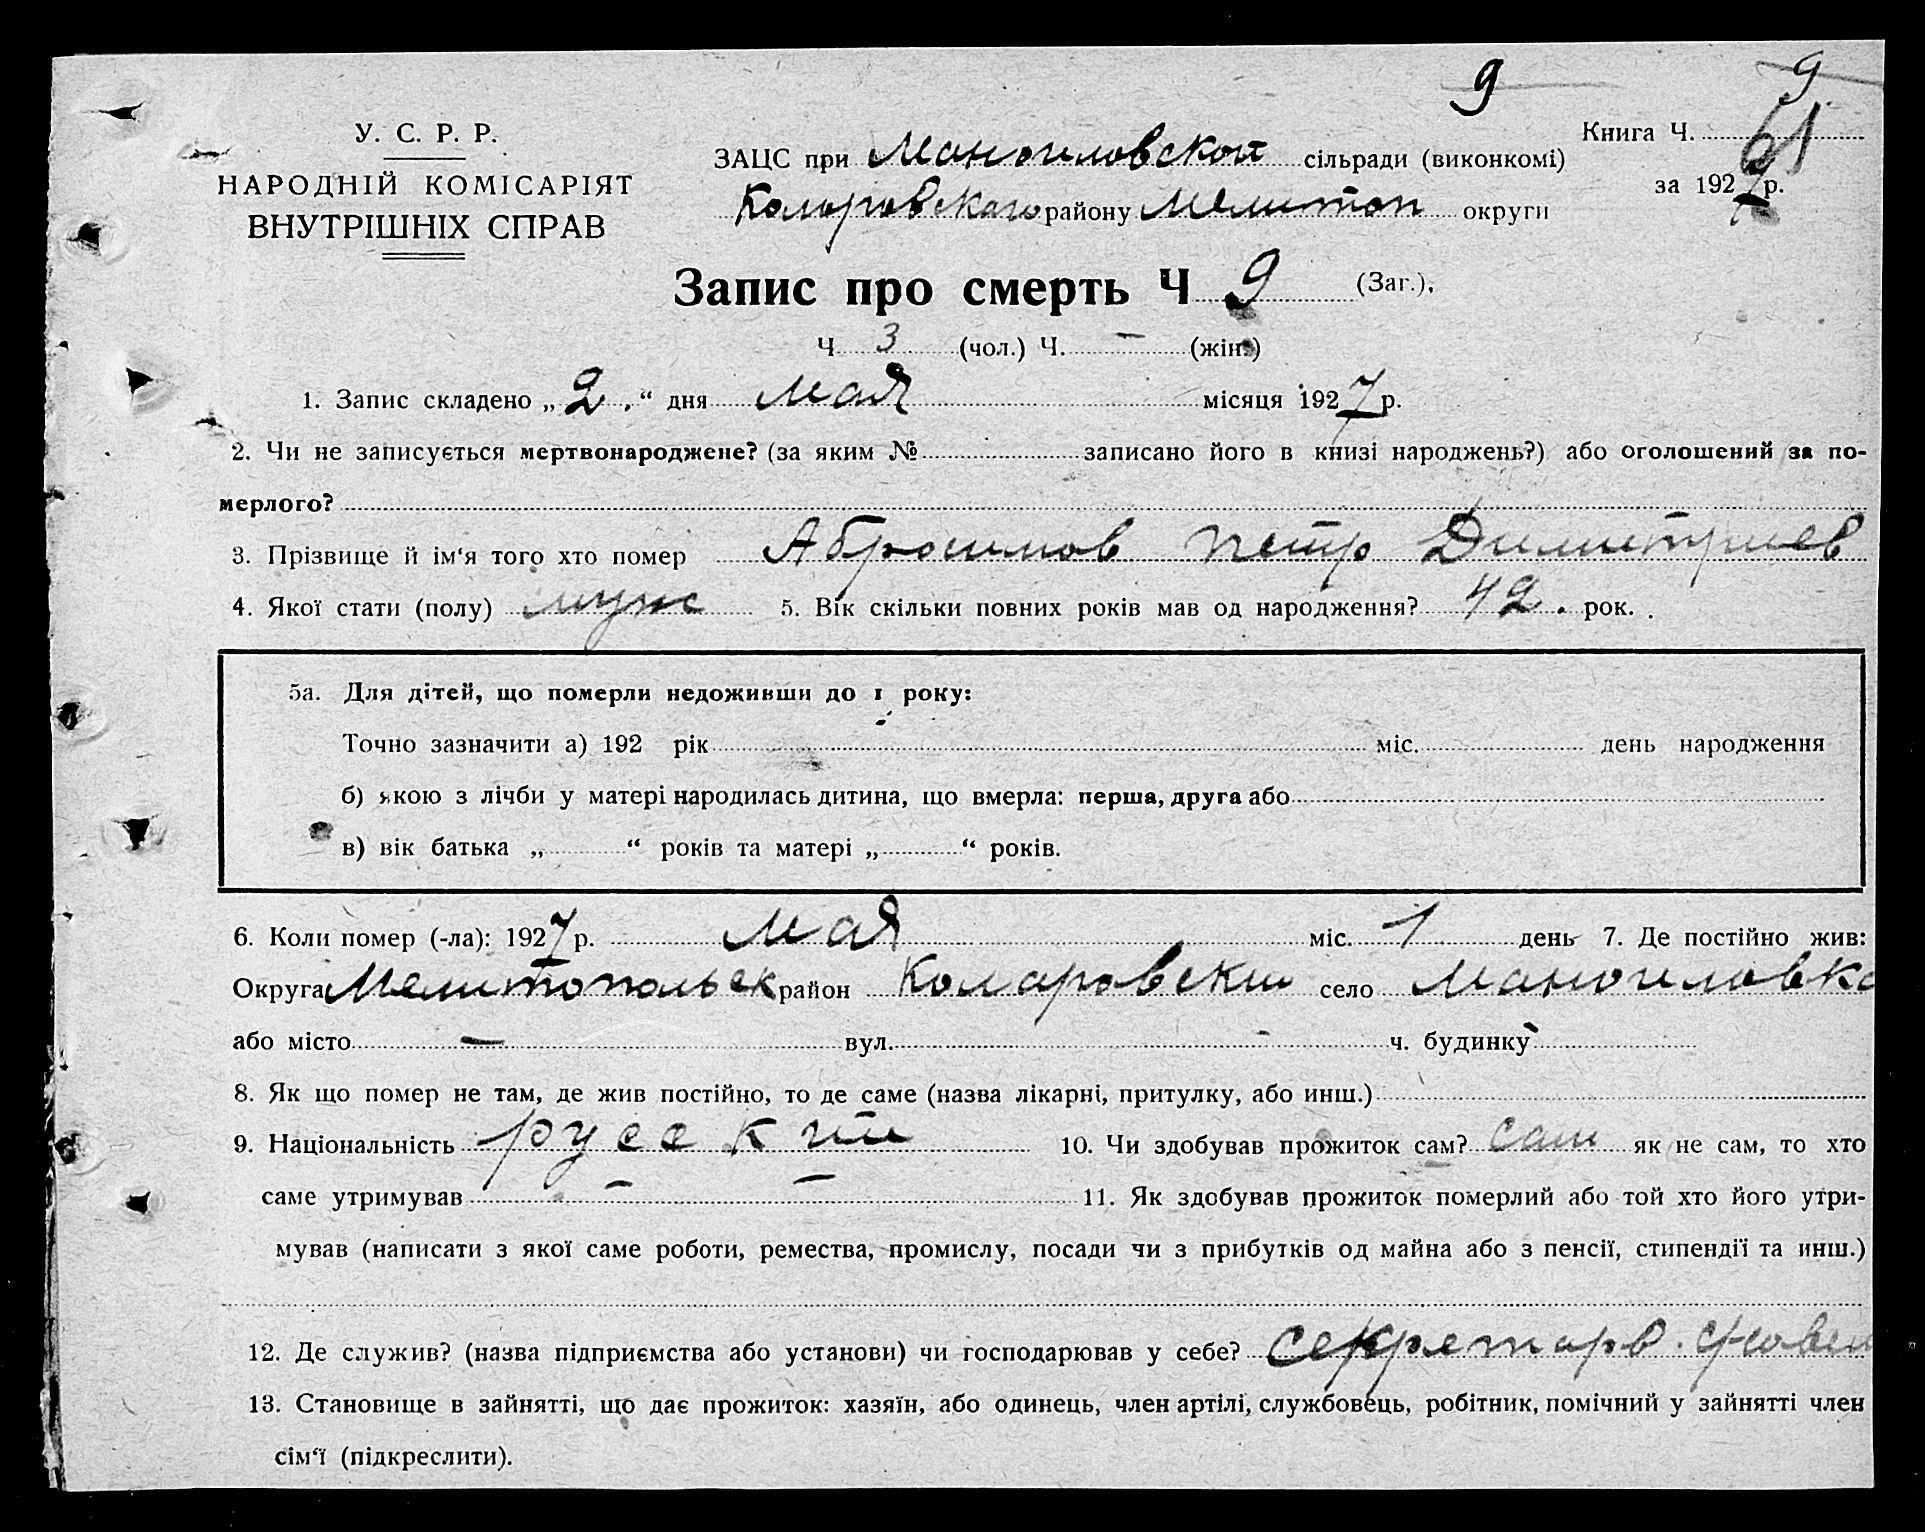 9 9
У. С. Р. Р.
НАРОДНІЙ КОМІСАРІЯТ
ВНУТРІШНІХ СПРАВ
ЗАЦС при Маногиловской сільради (виконкомі)
Коларовского району Мелитоп округи
Книга Ч. 61
за 1927 р.
Запис про смерть Ч 9 (Заг.),
Ч. 3 (чол.) Ч. – (жін.)
1. Запис складено „ 2. “ дня мая місяця 1927 р.
2. Чи не записується мертвонароджене? (за яким № записано його в книзі народжень?) або оголошений за по-
мерлого?
3. Прізвище й ім‘я того хто помер Абросимов Петр Димитриев
4. Якої стати (полу) муж 5. Вік скільки повних років мав од народження? 42. рок.
5а. Для дітей, що померли недоживши до 1 року:
Точно зазначити а) 192 рік міс. день народження
б) якою з лічби у матері народилась дитина, що вмерла: перша, друга або
в) вік батька „ “ років та матері „ “ років.
6. Коли помер (-ла): 1927 р. мая міс. 1 день 7. Де постійно жив:
Округа Мелитопольск район Коларовски село Маногиловка
або місто – вул. – ч. будинку
8. Як що помер не там, де жив постійно, то де саме (назва лікарні, притулку, або инш.)
9. Національність русский 10. Чи здобував прожиток сам? сам як не сам, то хто
саме утримував – – 11. Як здобував прожиток померлий або той хто його утри-
мував (написати з якої саме роботи, ремества, промислу, посади чи з прибутків од майна або з пенсії, стипендії та инш.)
12. Де служив? (назва підприємства або установи) чи господарював у себе? секретарв.
13. Становище в зайнятті, що дає прожиток: хазяїн, або одинець, член артілі, службовець, робітник, помічний у зайнятті член
сім‘ї (підкреслити).